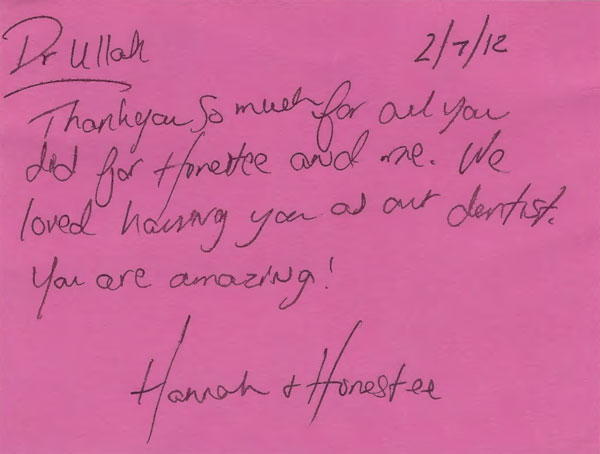 Dr Ullah 2/7/12
Thankyou So much for all you
did for Honestee and me. We
loved having you as our dentist.
You are amazing!
Hannah + Honestee